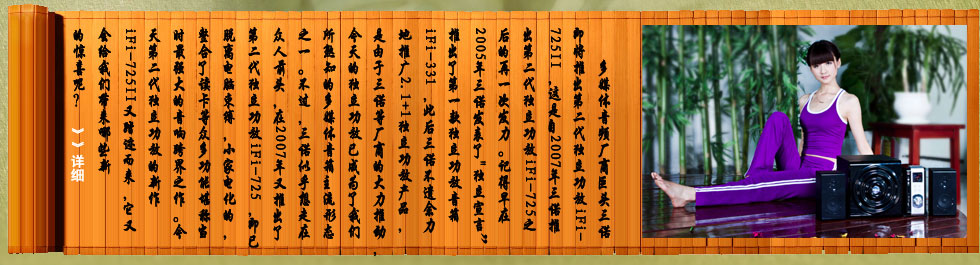 多媒体音频厂商巨头三诺
即将推出第二代独立功放iFi-
725II ，这是自2007年三诺推
出第二代独立功放iFi-725之
后的再一次发力。记得早在
2005年三诺发表了"独立宣言"，
推出了第一款独立功放音箱
iFi-331 ，此后三诺不遗余力
地推广2.1+1独立功放产品，
是由于三诺等厂商的大力推动，
今天的独立功放已成为了我们
所能知的多媒体音箱主流形态
之一。不过，三诺似乎想走在
众人前头，在2007年又推出了
第二代独立功放iFi-725 ，即已
脱离电脑束缚，小家电化的，
整合了读卡等众多功能堪称当
时最强大的音响跨界之作。今
天第二代独立功放的新作
iFi-725II又踏速而来，它又
会给我们带来哪些新
的惊喜呢？
》》详细